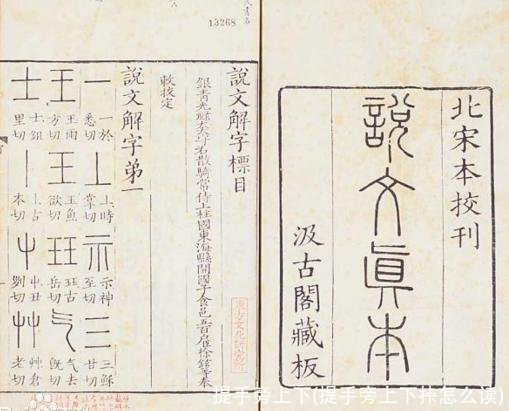 13268
北宋本挍刊
說文眞本
汲古閣藏板
說文解字標目
銀青光祿大夫守右散騎常侍上柱國東海縣開國子食邑五百戶臣徐鉉等奉
敕挍定
說文解字弟一
一 一於悉切 丄 丄時掌切 示 示神至切 三 三穌甘切
王 王雨方切 王 玉魚欲切 玨 玨古岳切 气 气去旣切
士 士鉏里切 丨 丨古本切 屮 屮丑列切 艸 艸倉老切
東方文化研究所
提手旁上下(提手旁上下抹怎么读)